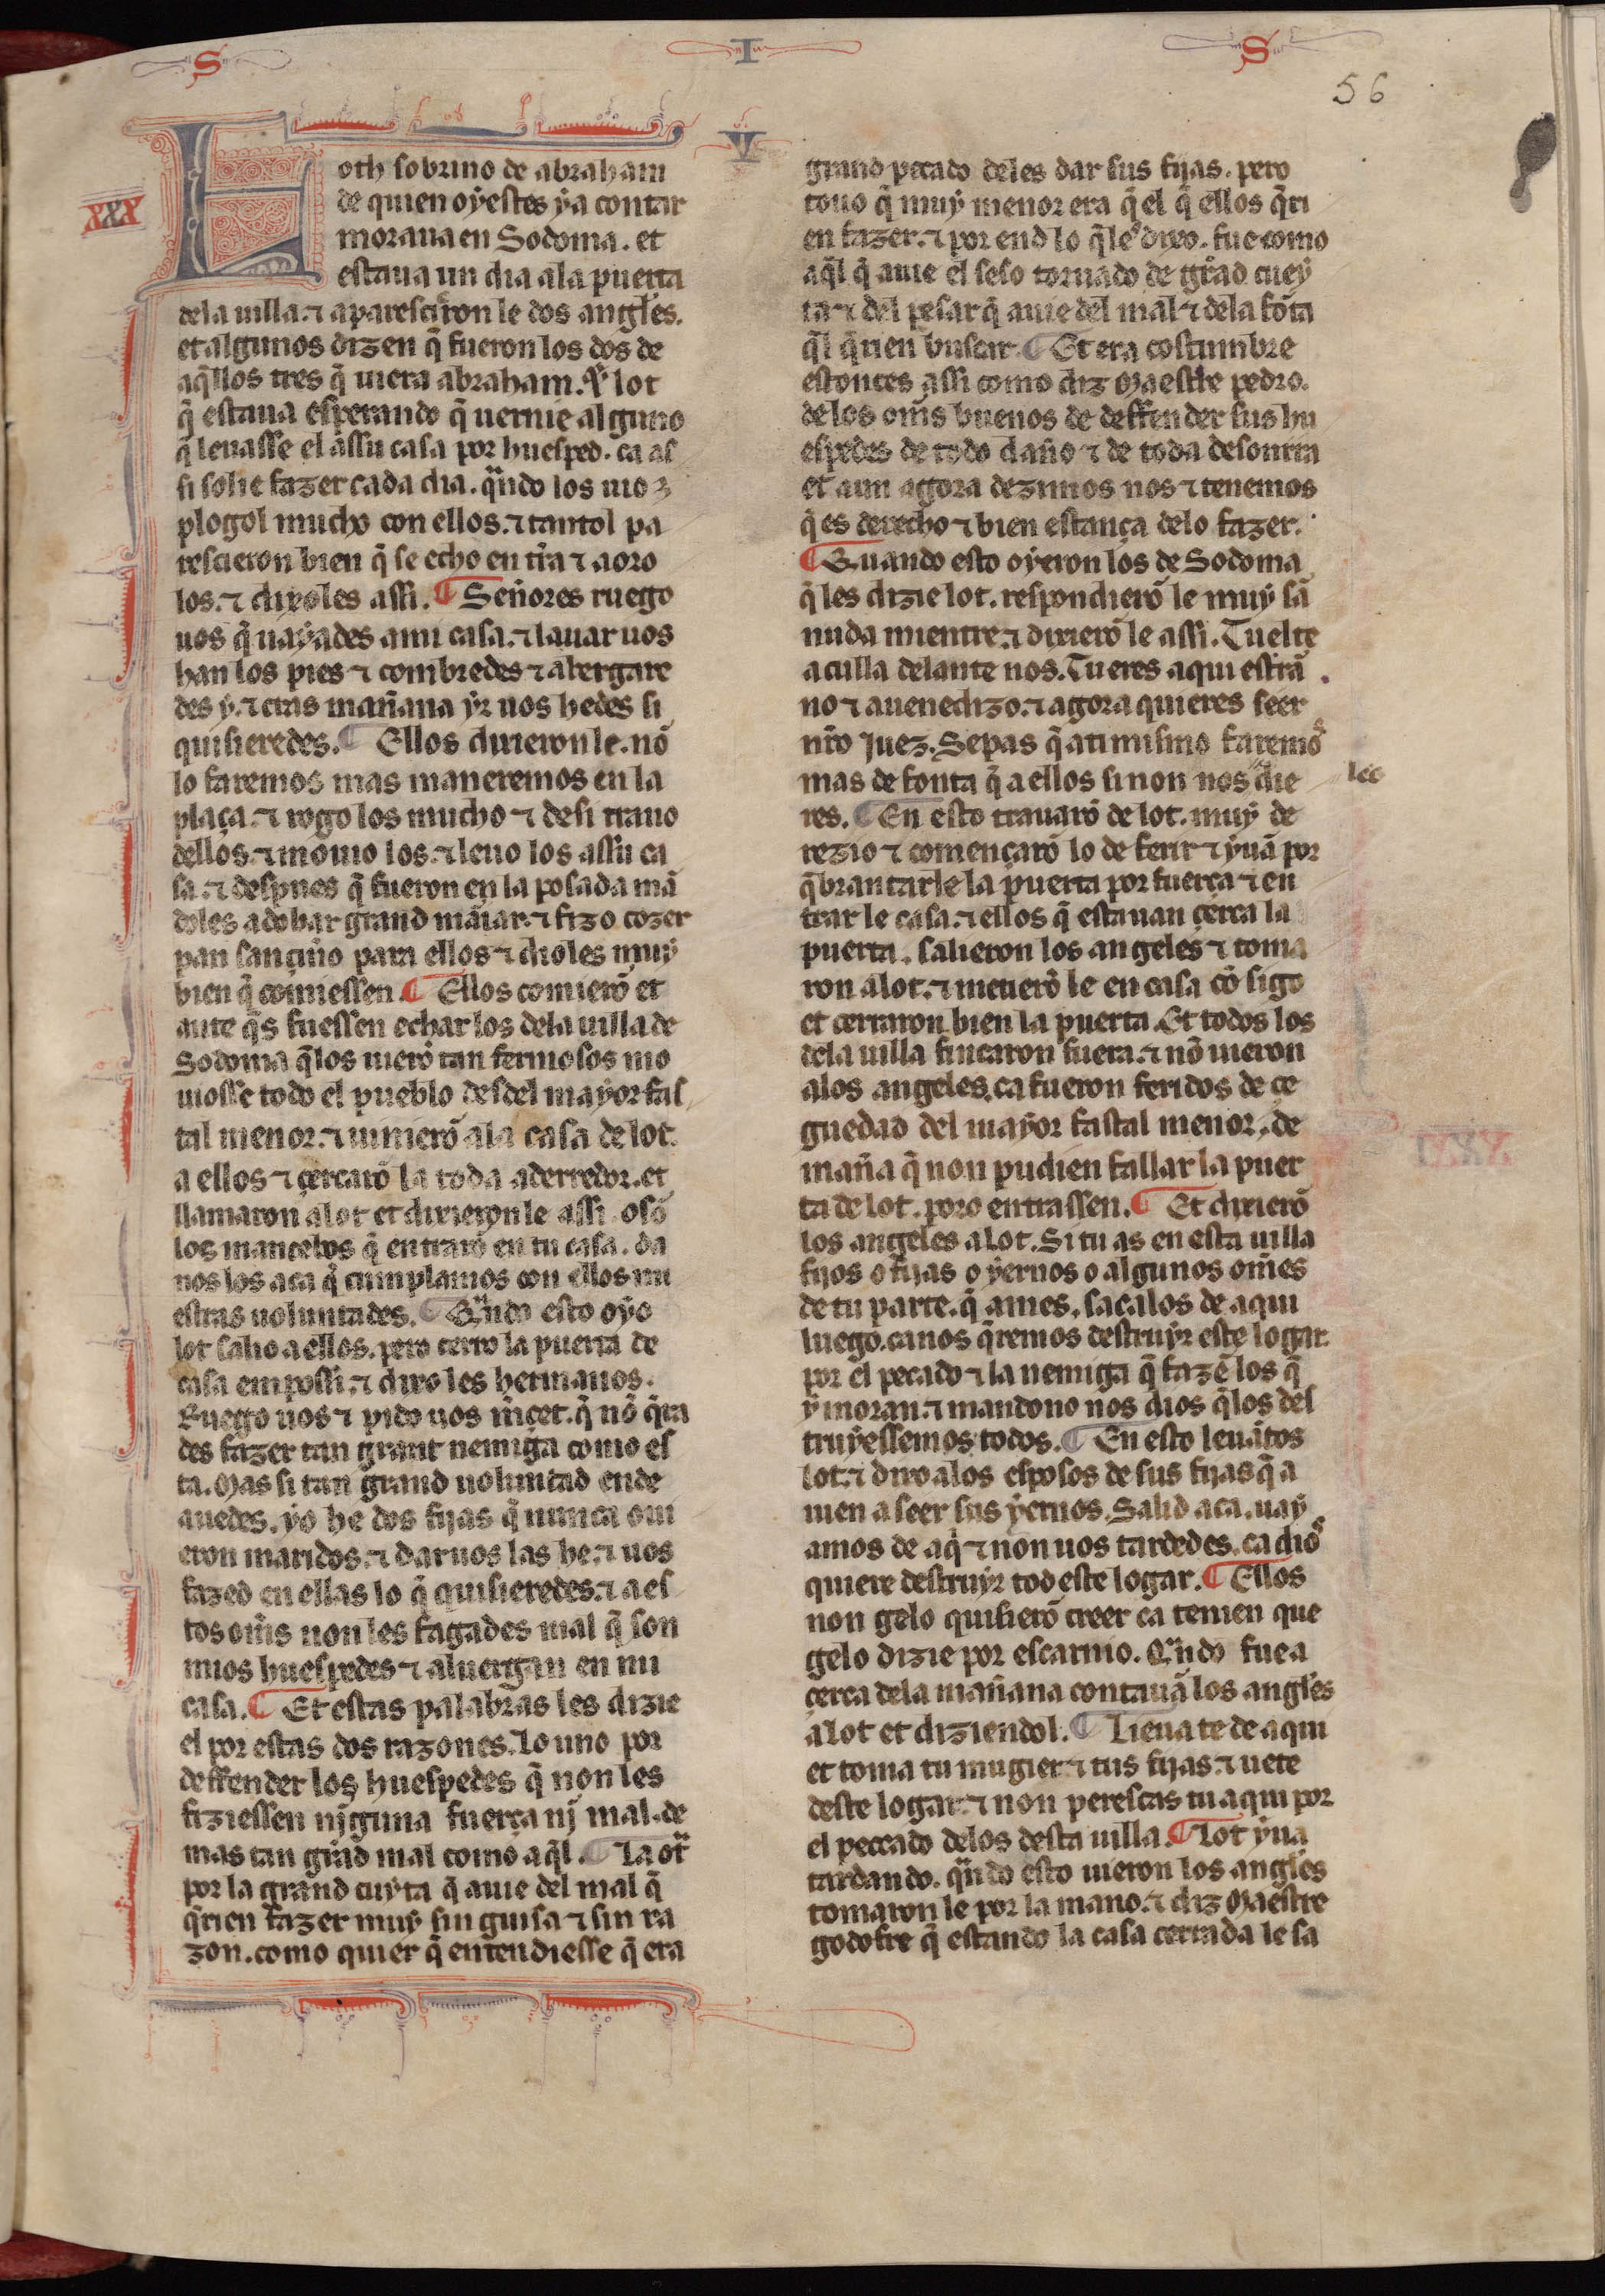 S I S
56
V
XXX
Loth sobrino de abraham
de quien oyestes ya contar
moraua en Sodoma. et
estaua un dia ala puerta
dela uilla. ⁊ aparescieron le dos angl̃es.
et algunos dizen q̃ fueron los dos de
aq̃llos tres q̃ uiera abraham. ⁊ lot
q̃ estaua esperando q̃ uernie alguno
q̃ leuasse el assu casa por huesped. ca as
si solie fazer cada dia. qũdo los uio
plogol mucho con ellos. ⁊ tantol pa
rescieron bien q̃ se echo en tr̃a ⁊ aoro
los. ⁊ dixoles assi. ¶ Señores ruego
uos q̃ uayades ami casa. ⁊ lauar uos
han los pies ⁊ combredes ⁊ abergare
des y. ⁊ cras mañana yr uos hedes si
quisieredes. ¶ Ellos dixieron le. nõ
lo faremos mas maneremos en la
plaça. ⁊ rogo los mucho ⁊ desi trauo
dellos. ⁊ mouio los. ⁊ leuo los assu ca
sa. ⁊ despues q̃ fueron en la posada mã
doles adobar grand mãiar. ⁊ fizo cozer
pan sançeño para ellos ⁊ dioles muy
bien q̃ comiessen. ¶ Ellos comierõ et
ante q̃s fuessen echar los dela uilla de
Sodoma q̃los uierõ tan fermosos mo
uiosse todo el pueblo desdel mayor fas
tal menor. ⁊ uinierõ ala casa de lot
a ellos ⁊ çercarõ la toda aderredor. et
llamaron alot et dixieron le assi. o sõ
los mancebos q̃ entrarõ en tu casa. da
nos los aca q̃ cumplamos con ellos nu
estras uoluntades. ¶ Qũdo esto oyo
lot salio a ellos. pero cerro la puerta de
casa empossi. ⁊ dixo les hermanos.
Ruego uos ⁊ pido uos m̃çet. q̃ nõ q̃ra
des fazer tan grant nemiga como es
ta. Mas si tan grand uoluntad ende
auedes. yo he dos fijas q̃ nunca oui
eron maridos. ⁊ daruos las he. ⁊ uos
fazed en ellas lo q̃ quisieredes. ⁊ a es
tos om̃s non les fagades mal q̃ son
mios huespedes ⁊ aluergan en mi
casa. ¶ Et estas palabras les dizie
el por estas dos razones. Lo uno por
deffender los huespedes q̃ non les
fiziessen nj̃guna fuerça nj̃ mal. de
mas tan grãd mal como aq̃l. ¶ La ot̃
por la grand cuyta q̃ auie del mal q̃
q̃rien fazer muy sin guisa ⁊ sin ra
zon. como quier q̃ entendiesse q̃ era
grand pecado deles dar sus fijas. pero
touo q̃ muy menor era q̃l q̃ ellos q̃ri
en fazer. ⁊ por end lo q̃les dixo. fue como
aq̃l q̃ auie el seso tornado de grãd cuey
ta ⁊ del pesar q̃ auie del mal ⁊ dela fõta
q̃l q̃rien buscar. ¶ Et era costumbre
estonces assi como diz Maestre pedro.
delos om̃s buenos de deffender sus hu
espedes de todo daño ⁊ de toda desonrra
et aun agora dezimos nos ⁊ tenemos
q̃ es derecho ⁊ bien estança delo fazer.
¶ Quando esto oyeron los de Sodoma
q̃ les dizie lot. respondierõ le muy sã
nuda mientre. ⁊ dixierõ le assi. Tuelte
aculla delante nos. Tu eres aqui estrã
no ⁊ auenedizo. ⁊ agora quieres seer
nr̃o Juez. Sepas q̃ ati mismo faremos
mas de fonta q̃ a ellos si non nos die
los
res. ¶ En esto trauarõ de lot. muy de
rezio ⁊ començarõ lo de ferir ⁊ yuã por
q̃brantarle la puerta por fuerça ⁊ en
trar le casa. ⁊ ellos q̃ estauan çerca la
puerta. salieron los angeles ⁊ toma
ron alot. ⁊ metierõ le en casa cõ sigo
et cerraron bien la puerta. Et todos los
dela uilla fincaron fuera. ⁊ nõ uieron
alos angeles. ca fueron feridos de çe
guedad del mayor fastal menor. de
maña q̃ non pudien fallar la puer
ta de lot. poro entrassen. ¶ Et dixierõ
los angeles alot. Si tu as en esta uilla
fijos o fijas o yernos o algunos om̃es
de tu parte. q̃ ames. sacalos de aqui
luego. ca nos q̃remos destruyr este logar
por el pecado ⁊ la nemiga q̃ fazẽ los q̃
y moran. ⁊ mandono nos dios q̃los des
truyessemos todos. ¶ En esto leuãtos
lot. ⁊ dixo alos esposos de sus fijas q̃ a
uien a seer sus yernos. Salid aca. uay
amos de aq̃ ⁊ non uos tardedes. ca dios
quiere destruyr tod este logar. ¶ Ellos
non gelo quisierõ creer ca tenien que
gelo dizie por escarnio. Qũdo fue a
çerca dela mañana contauã los angl̃es
alot et diziendol. ¶ Lieua te de aqui
et toma tu mugier. ⁊ tus fijas. ⁊ uete
deste logar. ⁊ non perescas tu aqui por
el peccado delos desta uilla. ¶ Lot yua
tardando. qũdo esto uieron los angl̃es
tomaron le por la mano. ⁊ diz Maestre
godofre q̃ estando la casa cerrada le sa